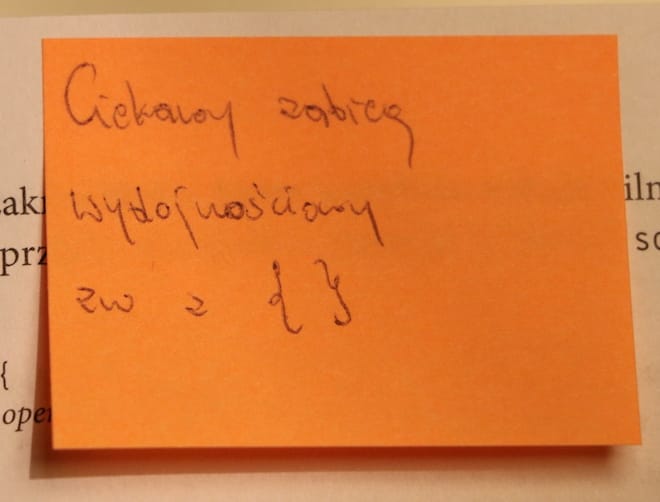 Ciekawy zabieg
wydajnościowy
zw z { }
akr
iln
prz
so
{
oper